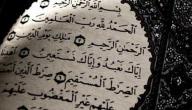 بِسْمِ اللَّهِ الرَّحْمَٰنِ الرَّحِيمِ
الْحَمْدُ لِلَّهِ رَبِّ الْعَالَمِينَ
الرَّحْمَٰنِ الرَّحِيمِ مَالِكِ يَوْمِ الدِّينِ
إِيَّاكَ نَعْبُدُ وَإِيَّاكَ نَسْتَعِينُ اهْدِنَا
الصِّرَاطَ الْمُسْتَقِيمَ صِرَاطَ الَّذِينَ
عَلَيْهِمْ غَيْرِ الْمَغْضُوبِ عَلَيْهِمْ